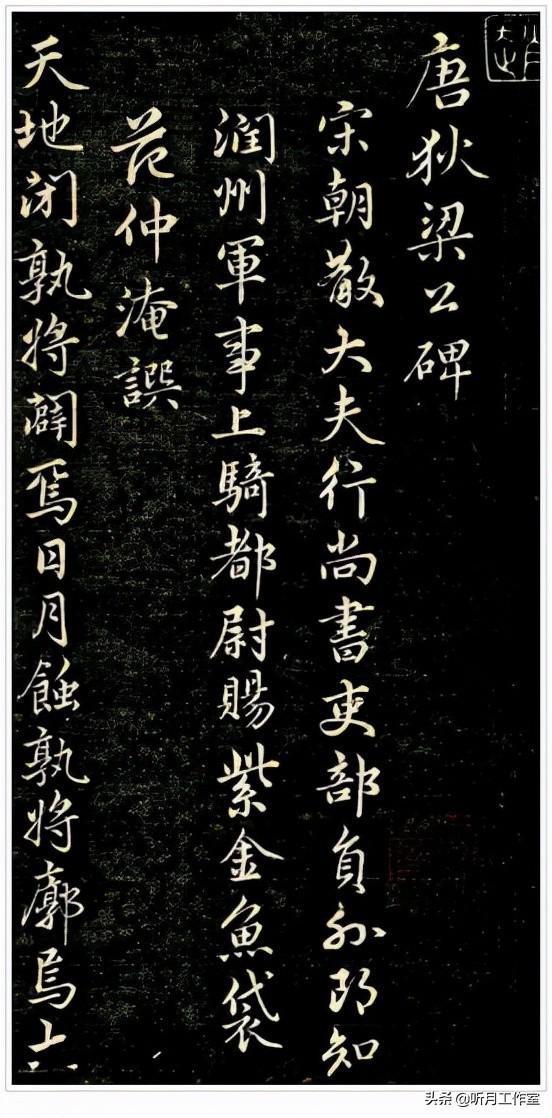 唐狄梁公碑
宋朝散大夫行尚書吏部員外郎知
潤州軍事上騎都尉賜紫金魚袋
范仲淹譔
天地閉孰將闢焉日月蝕孰將廓焉
头条 @听月工作室